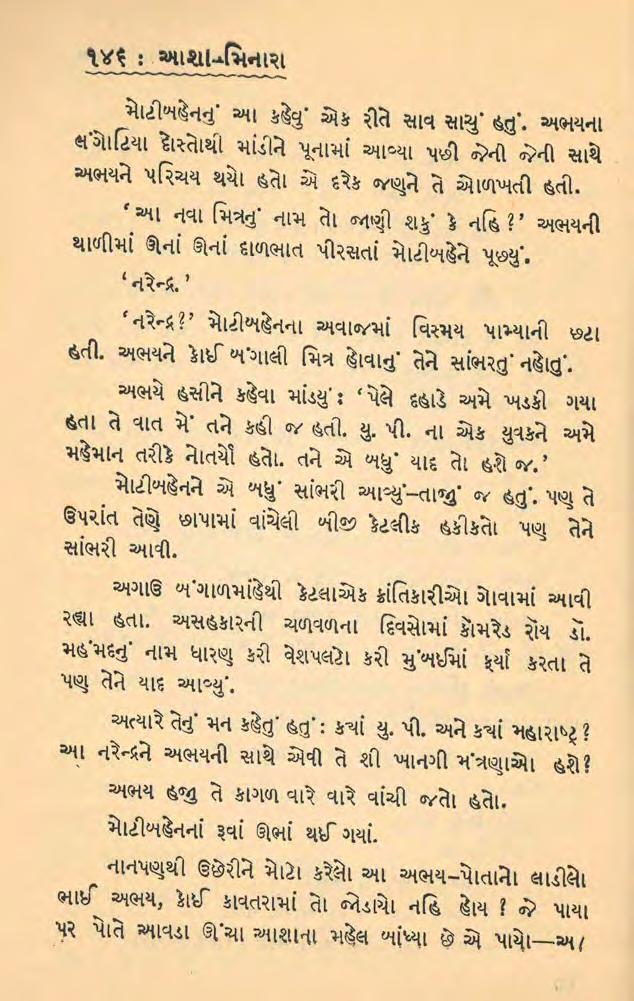 ૧૪૬ : આશા-મિનારા
મોટીબહેનનું આ કહેવું એક રીતે સાવ સાચું હતું. અભયના
લંગોટિયા દોસ્તોથી માંડીને પૂનામાં આવ્યા પછી જેની જેની સાથે
અભયને પરિચય થયો હતો એ દરેક જણને તે ઓળખતી હતી.
‘આ નવા મિત્રનું નામ તો જાણી શકું કે નહિ ?’ અભયની
થાળીમાં ઊનાં ઊનાં દાળભાત પીરસતાં મોટીબહેને પૂછ્યું.
‘નરેન્દ્ર.’
‘નરેન્દ્ર?’ મોટીબહેનના અવાજમાં વિસ્મય પામ્યાની છટા
હતી. અભયને કોઈ બંગાલી મિત્ર હોવાનું તેને સાંભરતું નહોતું.
અભયે હસીને કહેવા માંડયું : ‘પેલે દહાડે અમે ખડકી ગયા
હતા તે વાત મેં તને કહી જ હતી. યુ. પી. ના એક યુવકને અમે
મહેમાન તરીકે નોતર્યો હતો. તને એ બધું યાદ તો હશે જ.’
મોટીબહેનને એ બધું સાંભરી આવ્યું–તાજું જ હતું. પણ તે
ઉપરાંત તેણે છાપામાં વાંચેલી બીજી કેટલીક હકીકતો પણ તેને
સાંભરી આવી.
અગાઉ બંગાળમાંહેથી કેટલાએક ક્રાંતિકારીઓ ગોવામાં આવી
રહ્યા હતા. અસહકારની ચળવળના દિવસોમાં કોમરેડ રૉય ડૉ.
મહંમદનું નામ ધારણ કરી વેશપલટો કરી મુંબઈમાં ફર્યા કરતા તે
પણ તેને યાદ આવ્યું.
અત્યારે તેનું મન કહેતું હતું : ક્યાં યુ. પી. અને ક્યાં મહારાષ્ટ્ર ?
આ નરેન્દ્રને અભયની સાથે એવી તે શી ખાનગી મંત્રણાઓ હશે ?
અભય હજી તે કાગળ વારે વારે વાંચી જતો હતો.
મોટીબહેનનાં રૂવાં ઊભાં થઈ ગયાં.
નાનપણથી ઉછેરીને મોટો કરેલો આ અભય–પોતાનો લાડીલો
ભાઈ અભય, કોઈ કાવતરામાં તો જોડાયો નહિ હોય ? જે પાયા
પર પોતે આવડા ઊંચા આશાના મહેલ બાંધ્યા છે એ પાયો—અ